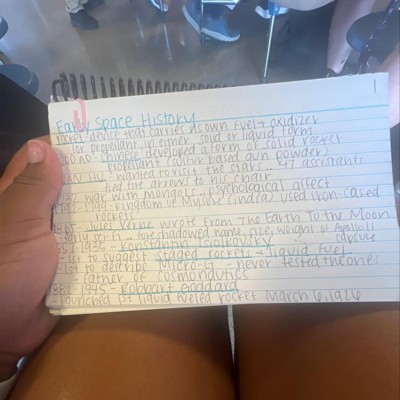 1
Early Space History
rocket: device that carries its own fuel & oxidizer
or propellant in either solid or liquid form
AD- Chinese developed a form of solid rocket
propellant (sulfur based gun powder)
WAN HU- wanted to visit the stars.. 47 assistants
tied fire arrow to his chair
1232 war with mongols, psychological affect
of Mysore (India) used iron-cased
rockets
Jules Verne wrote From the Earth To The Moon
early sci fi .. foreshadowed name, size, weight of Apollo 11
capsule
1935- Konstantin Tsiolkovsky
-1st to suggest staged rockets & liquid fuel
-1st to describe micro-G - never tested theories
father of cosmonautics
1945- Robbart Goddard
-launched 1st liquid fueled rocket March 6, 1926